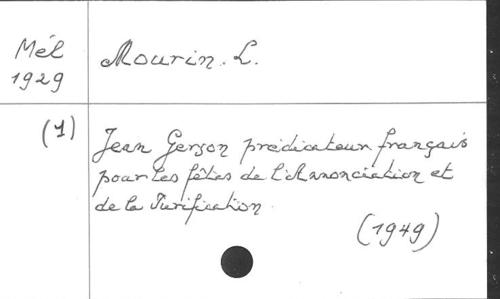 Mél
1929
Mourin. L.
(1)
Jean Gerson prédicateur français
pour les fêtes de l'Annonciation et
de la Purification.
(1949)